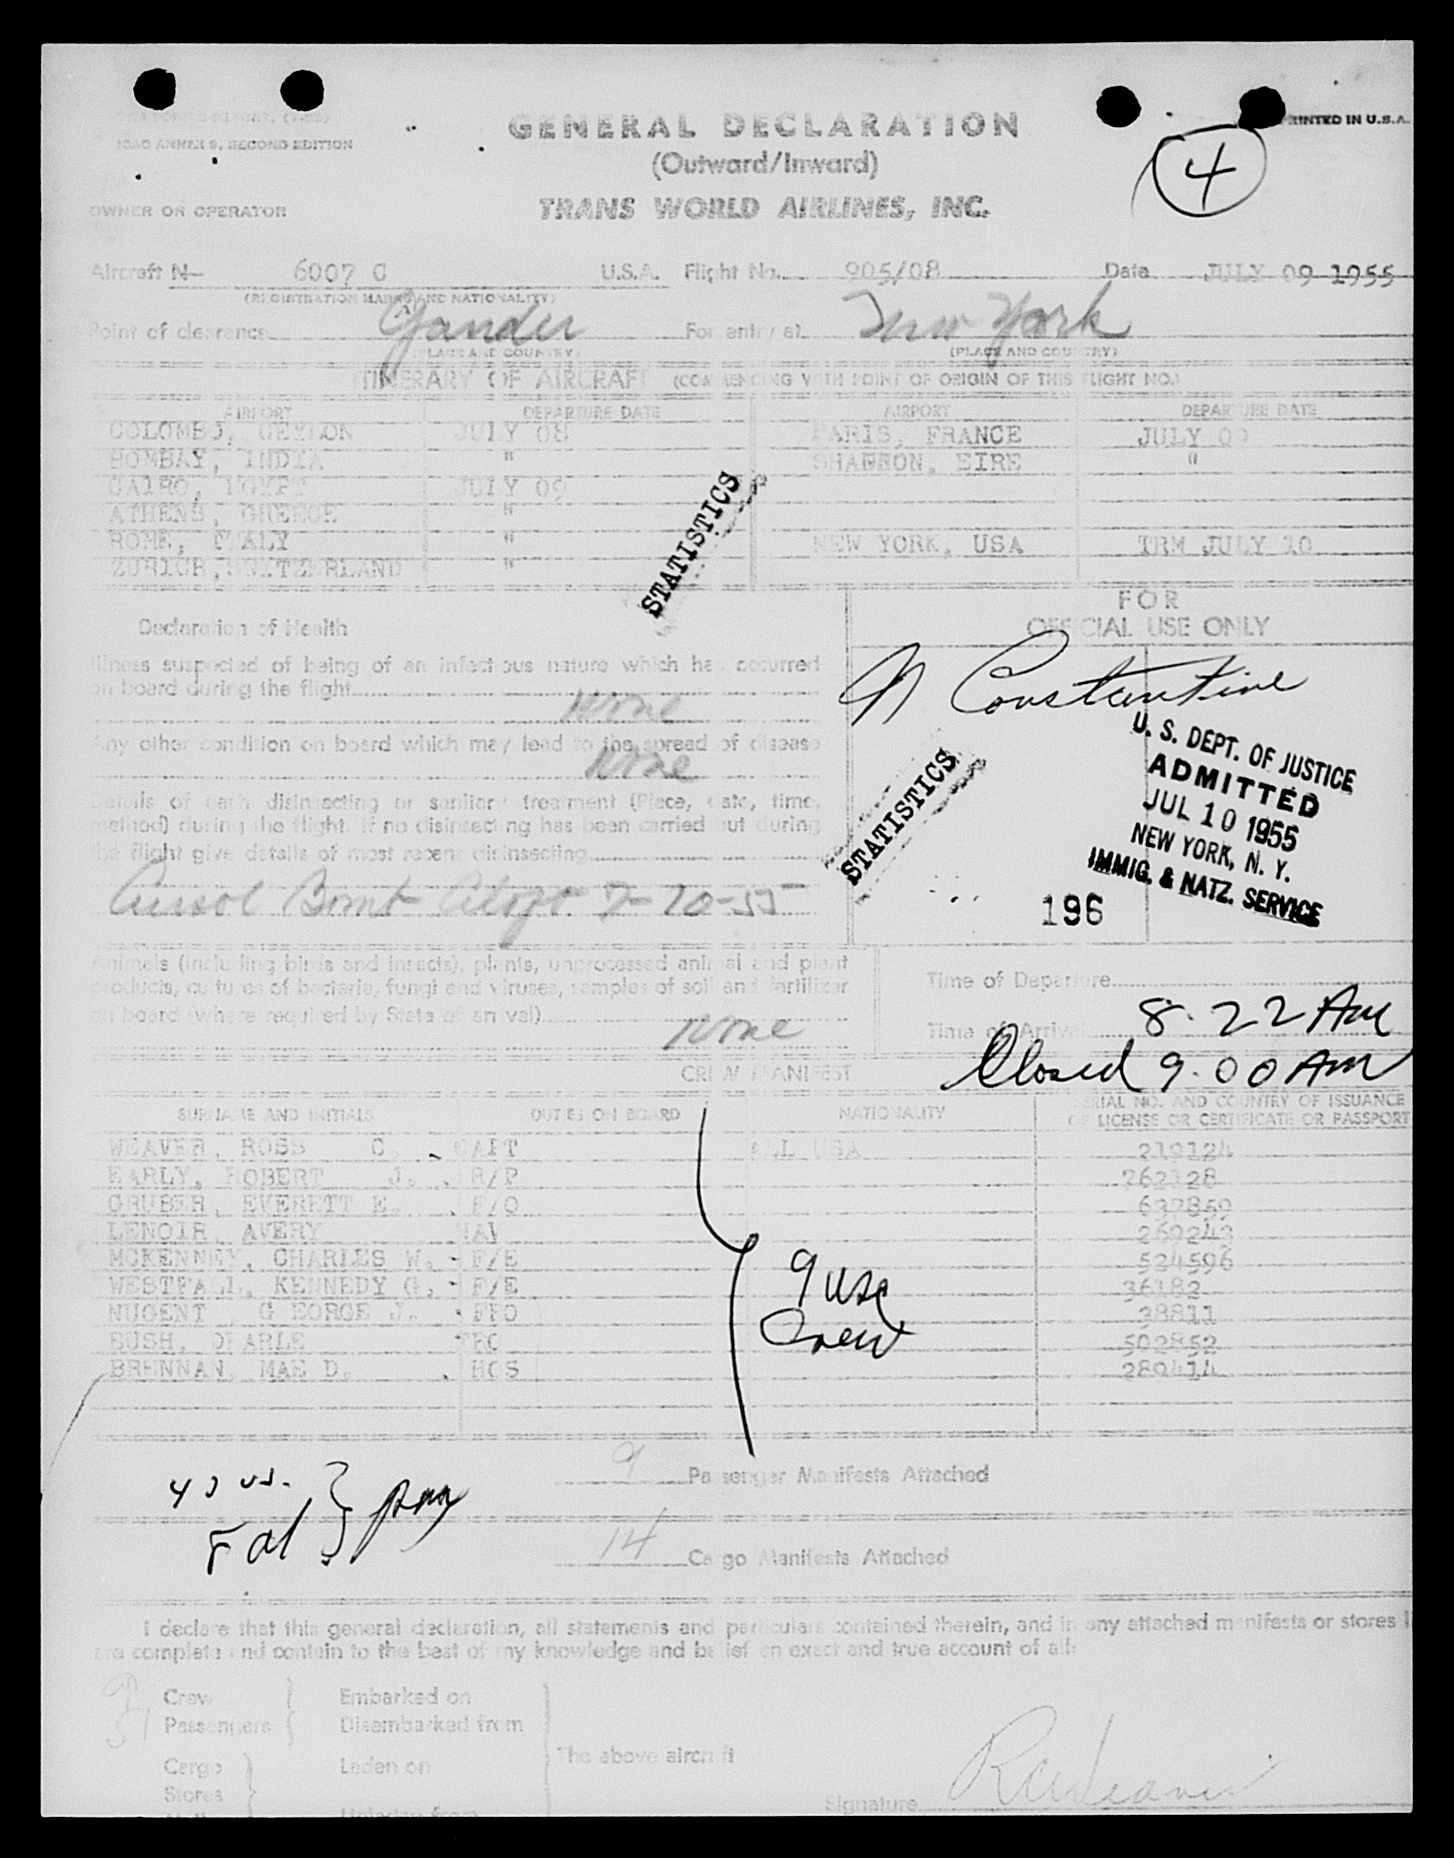 ICAO ANNEX 9, SECOND EDITION
PRINTED IN U.S.A.
GENERAL DECLARATION
(Outward/Inward)
4
OWNER OR OPERATOR
TRANS WORLD AIRLINES, INC.
Aircraft N- 6007 C U.S.A. Flight No. 905/08 Date JULY 09 1955
(REGISTRATION MARKS AND NATIONALITY)
Point of clearance Gander For entry at New York
(PLACE AND COUNTRY) (PLACE AND COUNTRY)
ITINERARY OF AIRCRAFT (COMMENCING WITH POINT OF ORIGIN OF THIS FLIGHT NO.)
AIRPORT DEPARTURE DATE AIRPORT DEPARTURE DATE
COLOMBO, CEYLON JULY 08 PARIS, FRANCE JULY 09
BOMBAY, INDIA " SHANNON, EIRE "
CAIRO, EGYPT JULY 09
ATHENS, GREECE "
ROME, ITALY " NEW YORK, USA TRM JULY 10
ZURICH, SWITZERLAND "
STATISTICS
FOR
OFFICIAL USE ONLY
Declaration of Health
Illness suspected of being of an infectious nature which has occurred
on board during the flight
none
Any other condition on board which may lead to the spread of disease
none
Details of each disinsecting or sanitary treatment (Place, date, time,
method) during the flight. If no disinsecting has been carried out during
the flight give details of most recent disinsecting
Aersol Bomb 7-10-55
N Constantine
U. S. DEPT. OF JUSTICE
ADMITTED
JUL 10 1955
NEW YORK, N. Y.
IMMIG. & NATZ. SERVICE
STATISTICS
196
Animals (including birds and insects), plants, unprocessed animal and plant
products, cultures of bacteria, fungi and viruses, samples of soil and fertilizer
on board (where required by State of arrival)
none
Time of Departure
Time of Arrival 8:22 AM
Closed 9:00 AM
CREW MANIFEST
SURNAME AND INITIALS DUTIES ON BOARD NATIONALITY SERIAL NO. AND COUNTRY OF ISSUANCE
OF LICENSE OR CERTIFICATE OR PASSPORT
WEAVER, ROSS C. CAPT ALL USA 219124
EARLY, ROBERT J. R/P 262128
GRUBER, EVERETT E. F/O 637859
LENOIR, AVERY NAV 269243
MCKENNEY, CHARLES W. F/E 524596
WESTFALL, KENNEDY G. F/E 36182
NUGENT, GEORGE J. FFO 38811
BUSH, DEARLE 502852
BRENNAN, MAE D. HOS 289414
9 USA
Crew
9 Passenger Manifests Attached
43 US.
8 al
14 Cargo Manifests Attached
I declare that this general declaration, all statements and particulars contained therein, and in any attached manifests or stores
are complete and contain to the best of my knowledge and belief an exact and true account of all:
9 Crew Embarked on
51 Passengers Disembarked from
The above aircraft
Cargo Laden on
Stores
Unladen from
Signature R C Weaver